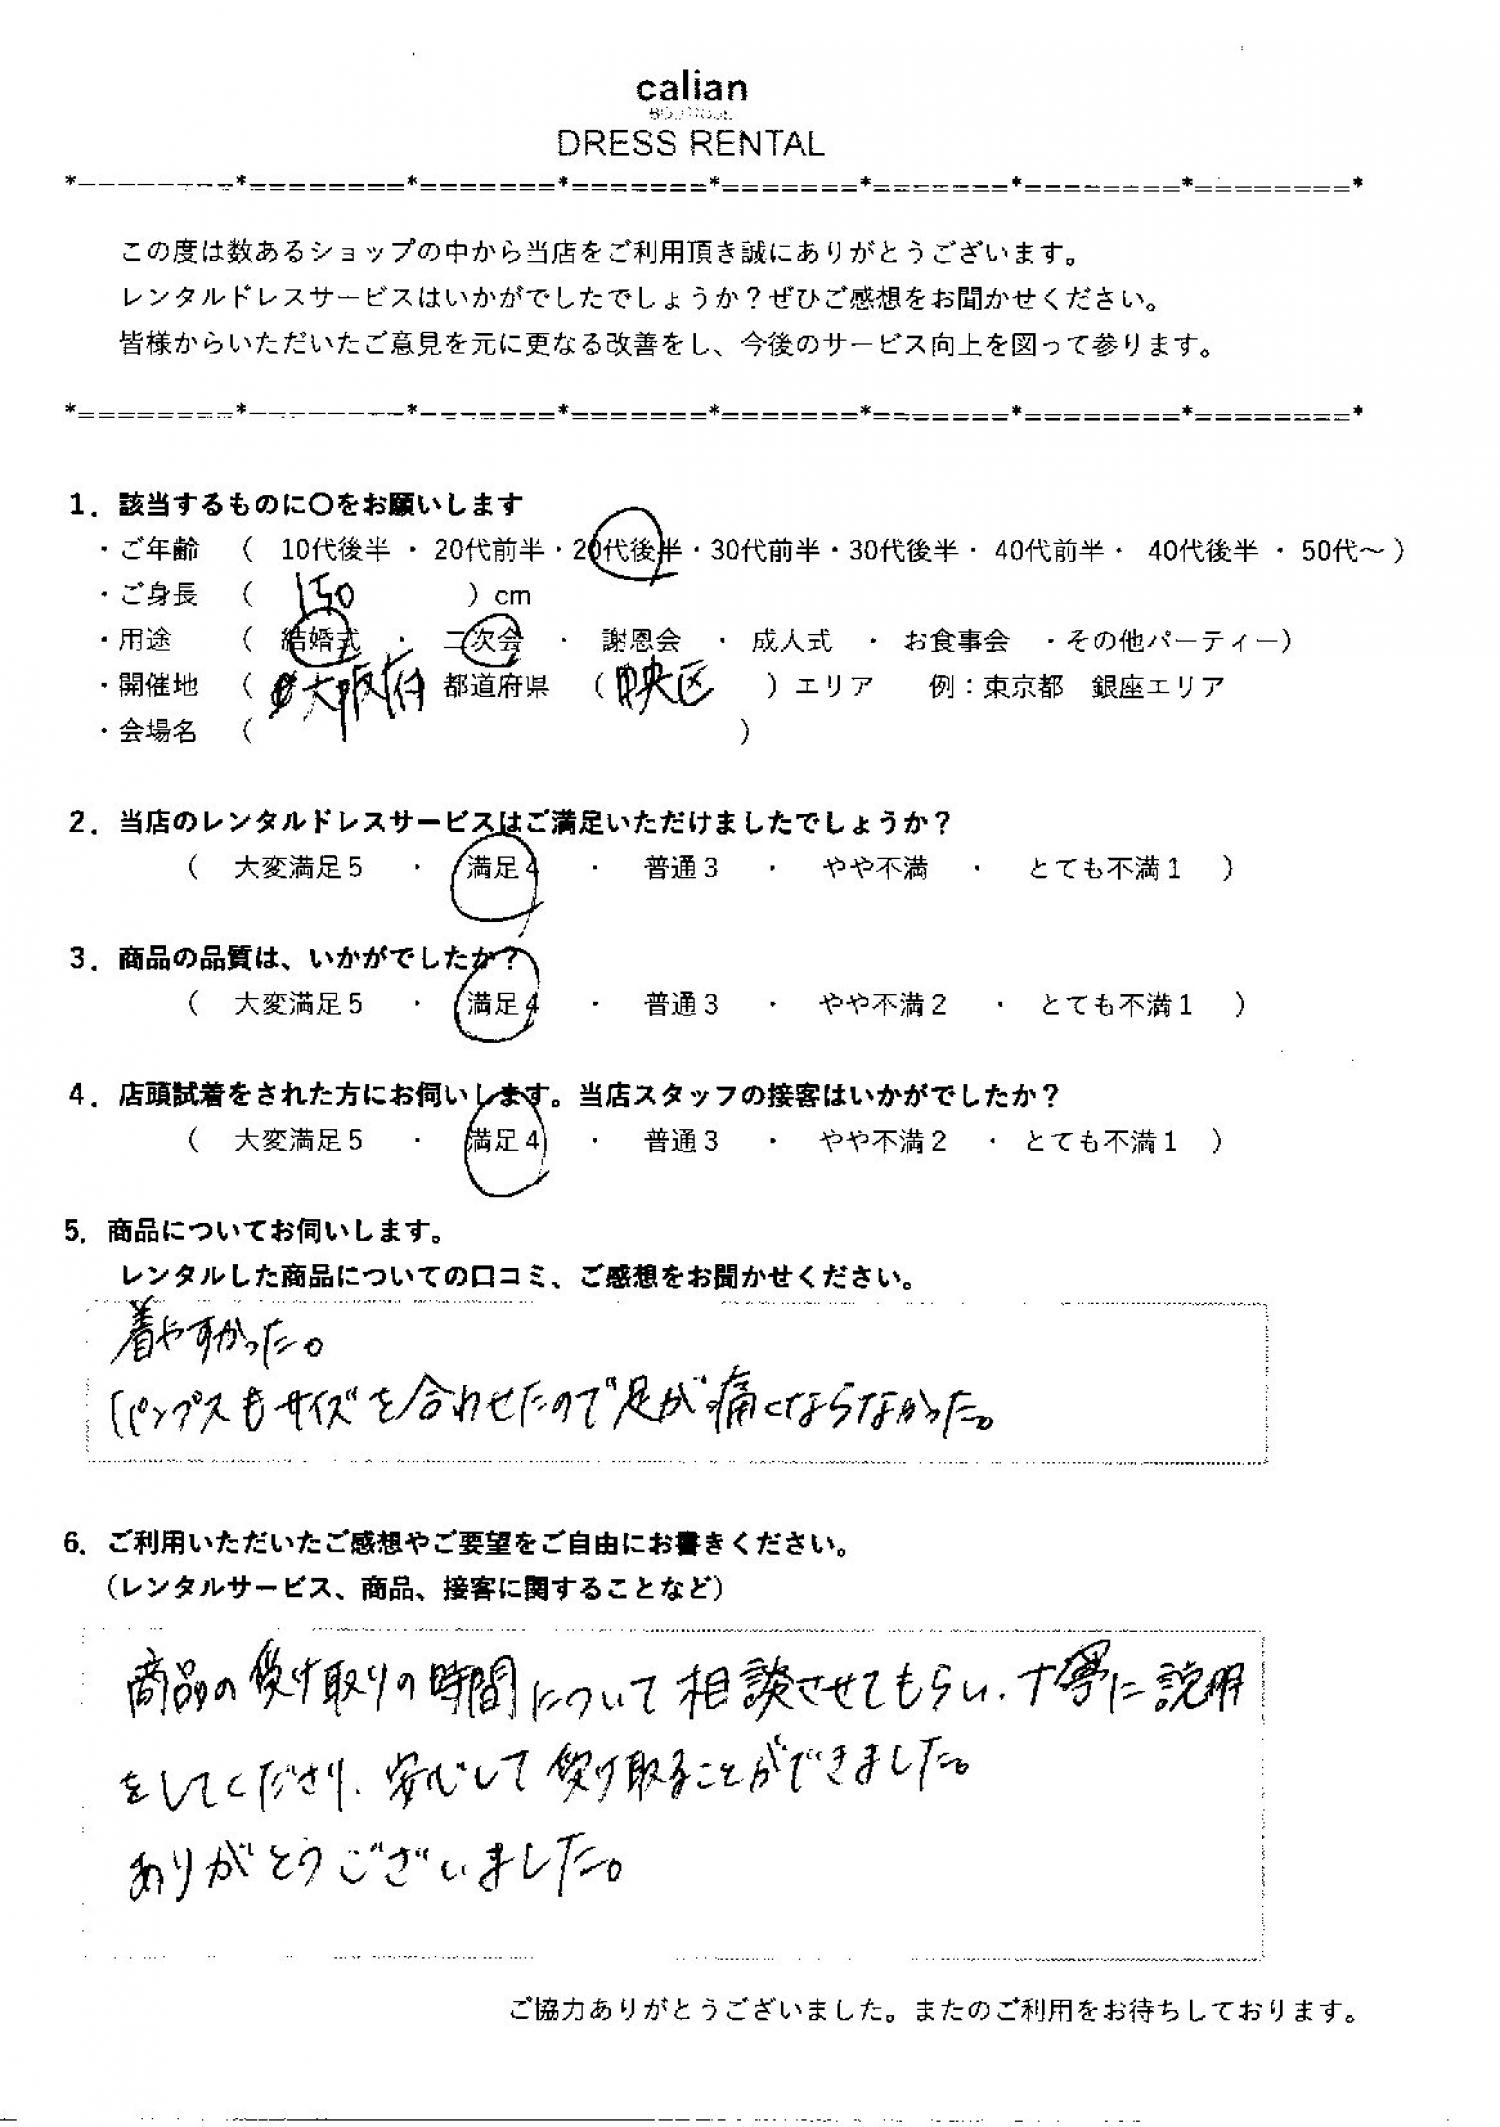 calian
BOUTIQUE
DRESS RENTAL
*---------*========*=======*=======*=======*=======*========*========*
この度は数あるショップの中から当店をご利用頂き誠にありがとうございます。
レンタルドレスサービスはいかがでしたでしょうか？ぜひご感想をお聞かせください。
皆様からいただいたご意見を元に更なる改善をし、今後のサービス向上を図って参ります。
*========*--------*-------*=======*=======*=======*========*========*
1．該当するものに〇をお願いします
・ご年齢 （ 10代後半 ・ 20代前半・20代後半・30代前半・30代後半・ 40代前半・ 40代後半 ・ 50代～ ）
・ご身長 （ 150 ）cm
・用途 （ 結婚式 ・ 二次会 ・ 謝恩会 ・ 成人式 ・ お食事会 ・その他パーティー）
・開催地 （ 大阪府 都道府県 （ 中央区 ）エリア 例：東京都 銀座エリア
・会場名 （ ）
2．当店のレンタルドレスサービスはご満足いただけましたでしょうか？
（ 大変満足５ ・ 満足４ ・ 普通３ ・ やや不満 ・ とても不満１ ）
3．商品の品質は、いかがでしたか？
（ 大変満足５ ・ 満足４ ・ 普通３ ・ やや不満２ ・ とても不満１ ）
4．店頭試着をされた方にお伺いします。当店スタッフの接客はいかがでしたか？
（ 大変満足５ ・ 満足４ ・ 普通３ ・ やや不満２ ・ とても不満１ ）
5．商品についてお伺いします。
レンタルした商品についての口コミ、ご感想をお聞かせください。
着やすかった。
パンプスもサイズを合わせたので足が痛くならなかった。
6．ご利用いただいたご感想やご要望をご自由にお書きください。
（レンタルサービス、商品、接客に関することなど）
商品の受け取りの時間について相談させてもらい、丁寧に説明
をしてくださり、安心して受け取ることができました。
ありがとうございました。
ご協力ありがとうございました。またのご利用をお待ちしております。